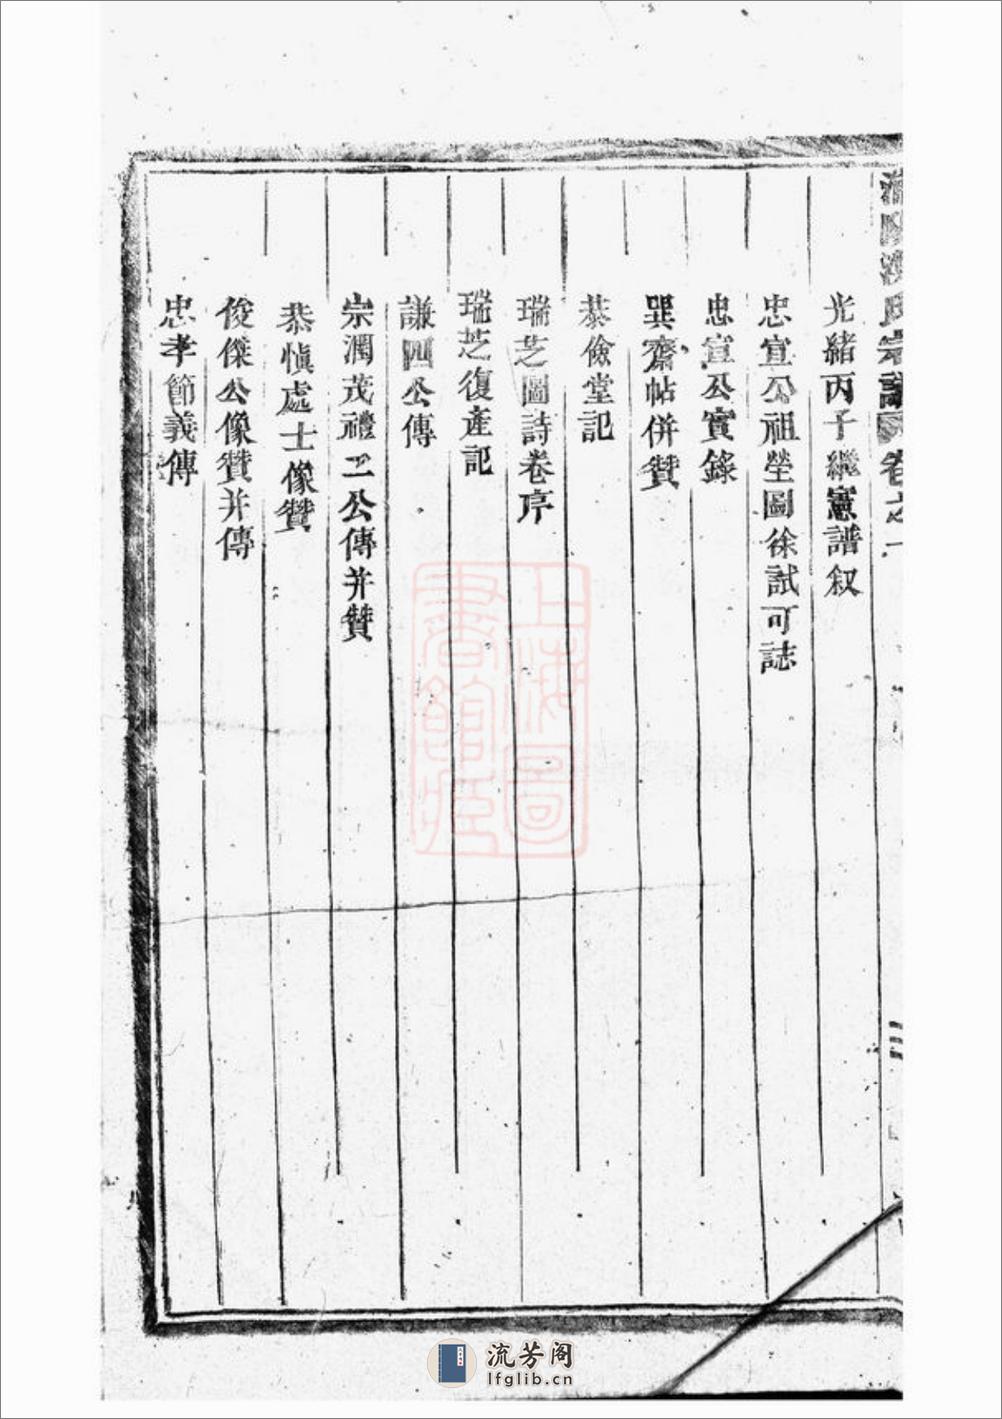 氏宗譜 卷之一
光緒丙子繼憲譜叙
忠宣公祖塋圖徐試可誌
忠宣公實錄
巽齋帖併贊
恭儉堂記
瑞芝圖詩卷序
瑞芝復產記
謙四公傳
宗潤茂禮二公傳并贊
恭慎處士像贊
俊傑公像贊并傳
忠孝節義傳
上海圖書館藏
流芳阁
lfglib.cn